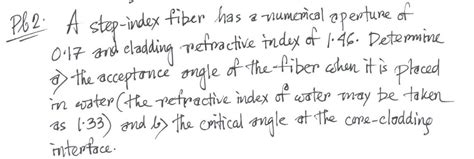 Pb2. A step-index fiber has a numerical aperture of
0.17 and cladding refractive index of 1.46. Determine
a) the acceptance angle of the fiber when it is placed
in water (the refractive index of water may be taken
as 1.33) and b) the critical angle at the core-cladding
interface.